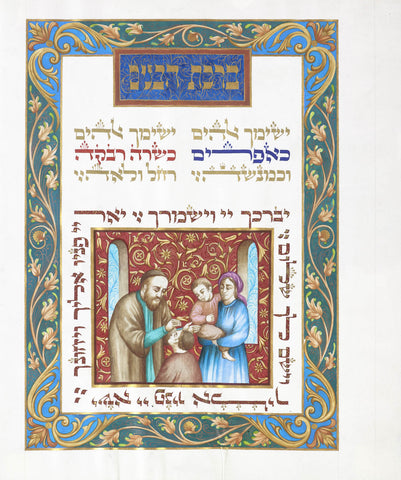 ברכת הבנים
ישימך אלהים
כאפרים
וכמנשה
ישימך אלהים
כשרה רבקה
רחל ולאה
יברכך יי וישמרך יאר
יי פניו אליך ויחונך
ישא יי פניו אליך
וישם לך שלום